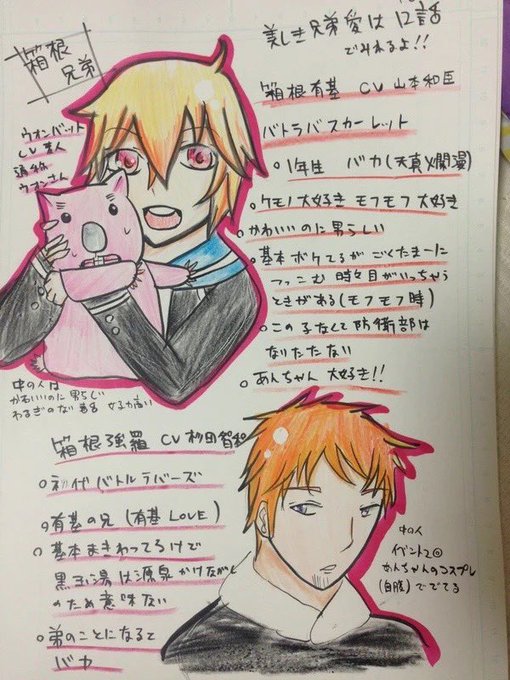 箱根
兄弟
美しき兄弟愛は12話
でみれるよ!!
箱根有基 CV 山本和臣
バトラバスカーレット
○1年生 バカ(天真爛漫)
○ケモノ大好き モフモフ大好き
○かわいいのに男らしい
○基本ボケてるがごくたまーに
つっこむ 時々目がいっちゃう
ときがある(モフモフ時)
○この子なくして防衛部は
なりたたない
○あんちゃん大好き!!
ウォンバット
CV 本人
通称
ウォンさん
中の人は
かわいいのに男らしい
わるぎのない毒舌 女子力高い
箱根強羅 CV 杉田智和
○初代バトルラバーズ
○有基の兄(有基LOVE)
○基本まきわってるけで
黒玉湯は源泉かけながし
のため意味ない
○弟のことになると
バカ
中の人
イベント2の
あんちゃんのコスプレ
(自腹)でてる